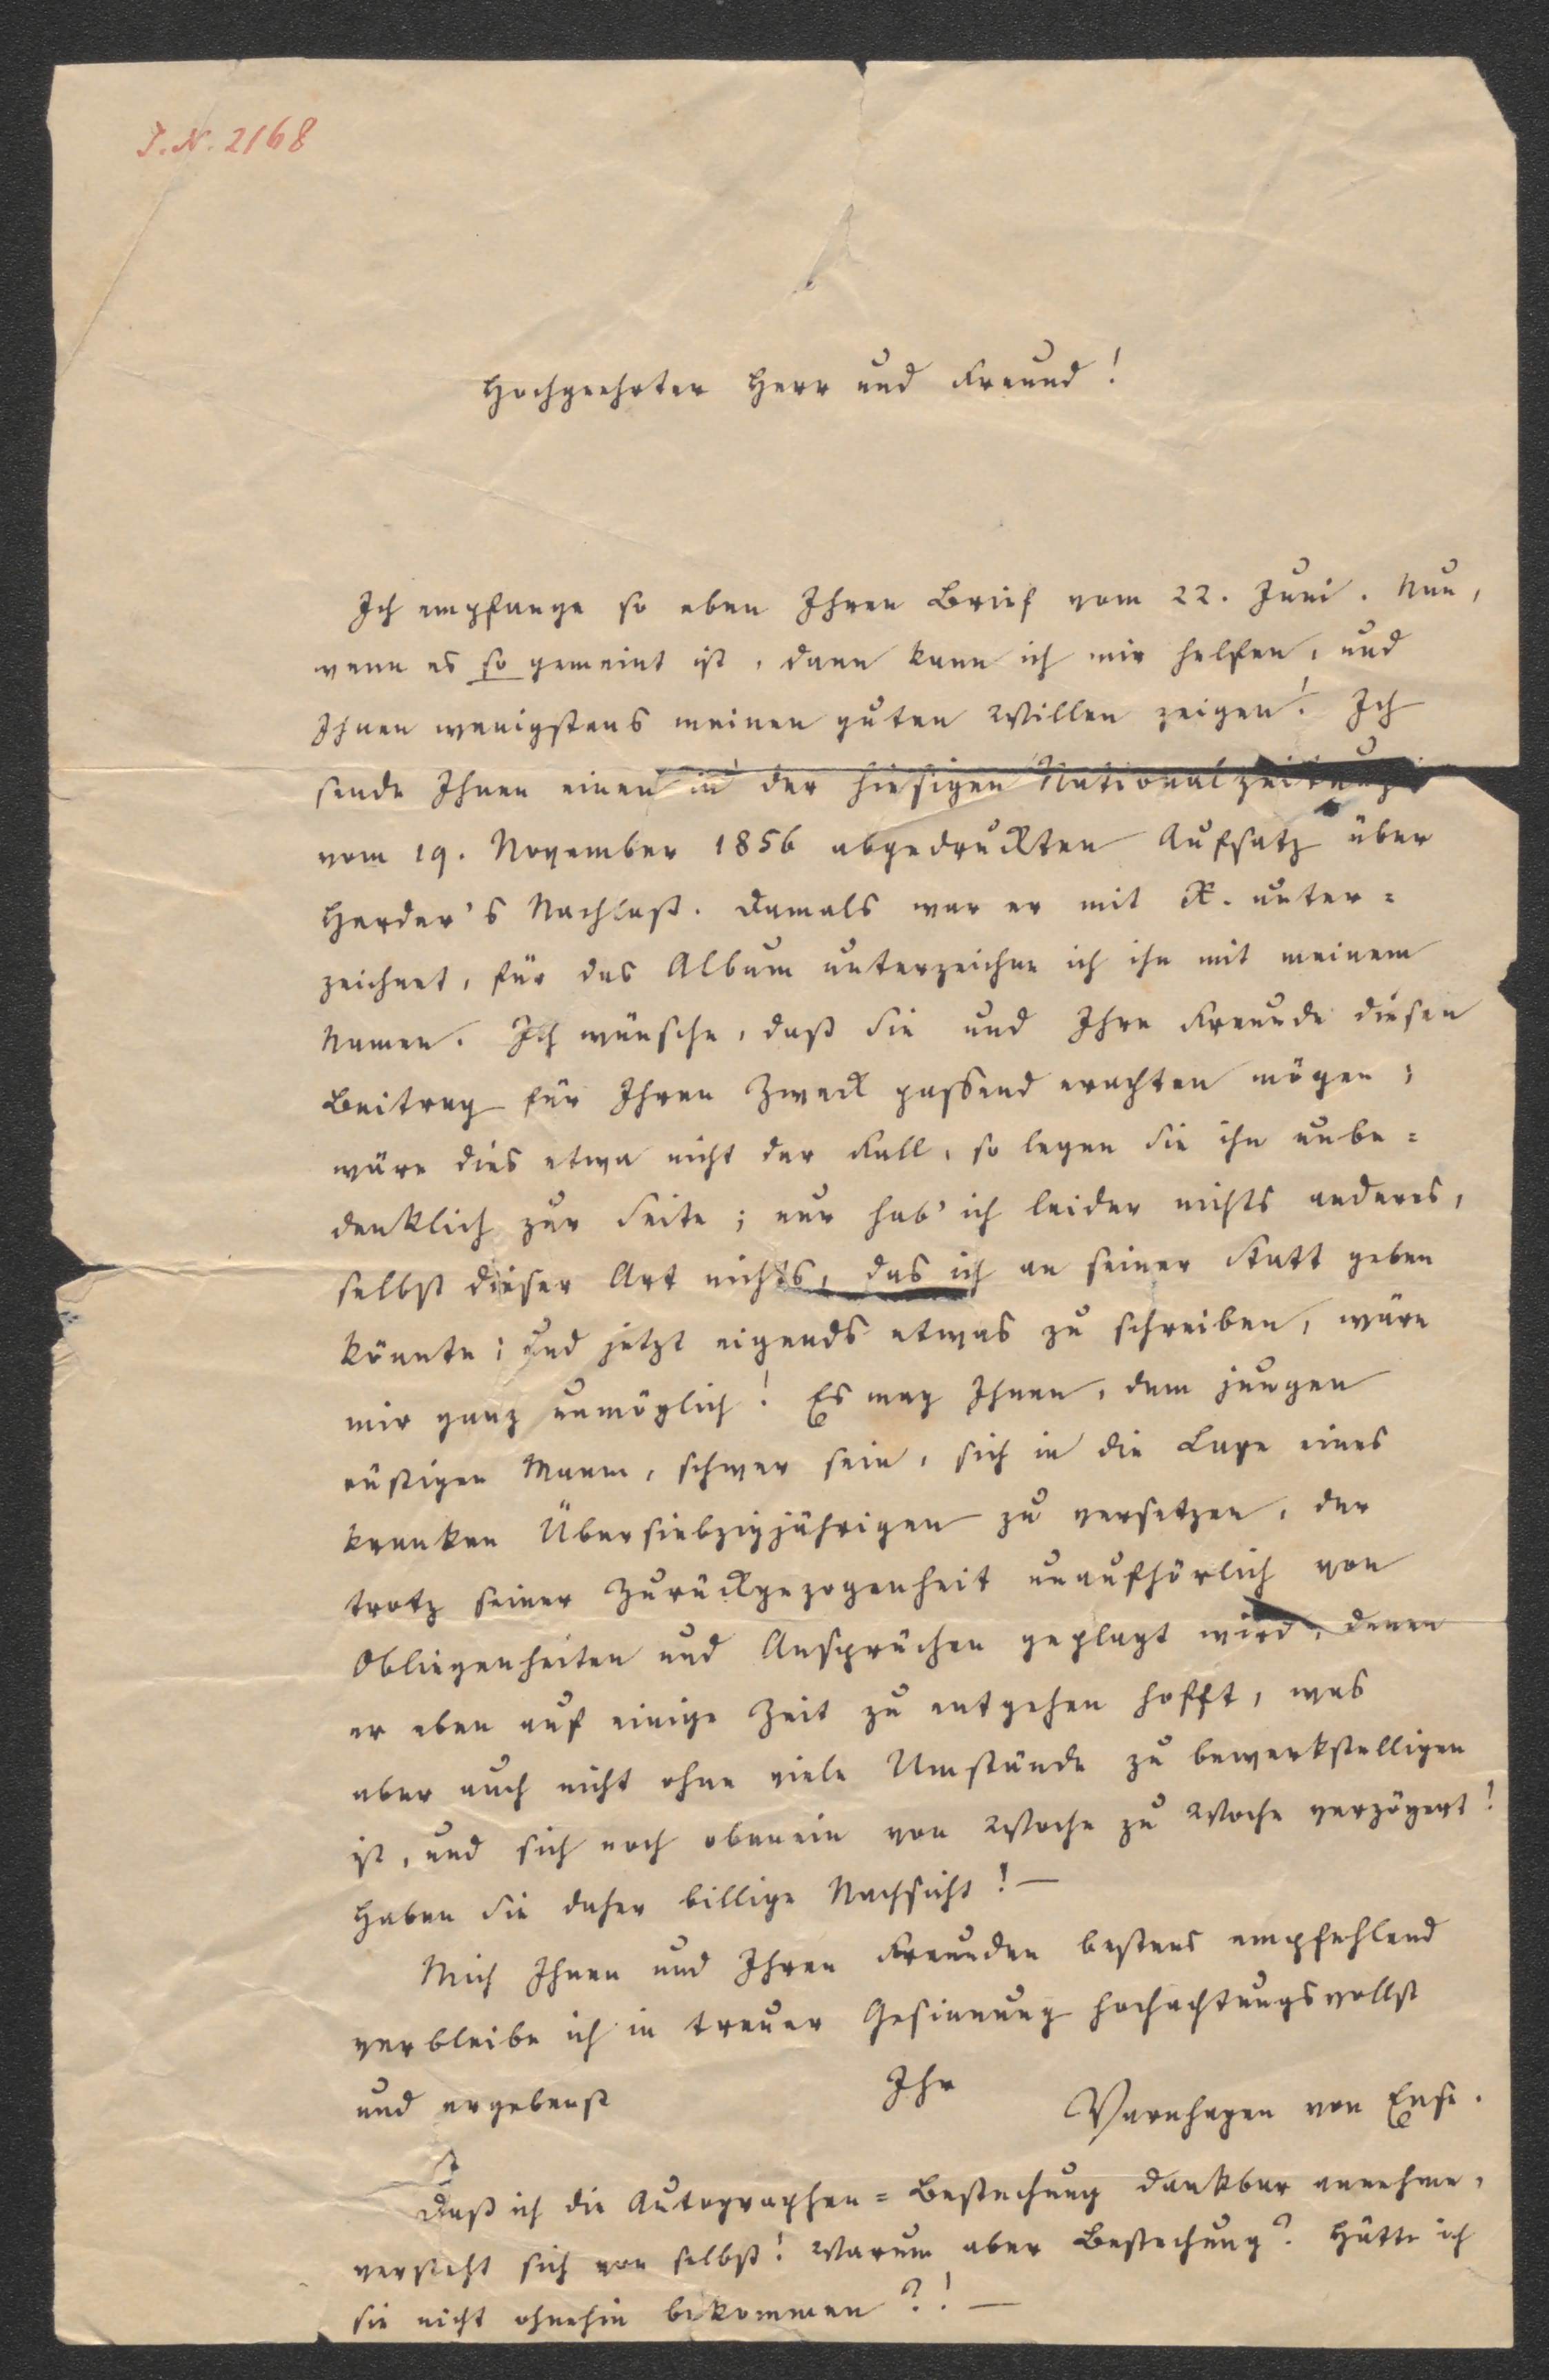 J. N. 2168
Hochgeehrter Herr und Freund!
Ich empfange so eben Ihren Brief vom 22. Juni. Nun,
wenn es so gemeint ist, dann kann ich mir helfen, und
Ihnen wenigstens meinen guten Willen zeigen! Ich
sende Ihnen einen in der hiesigen Nationalzeitung
vom 19. November 1856 abgedruckten Aufsatz über
Herder's Nachlaß. Damals war er mit unter=
zeichnet, für das Album unterzeichne ich ihn mit meinem
Namen. Ich wünsche, daß Sie und Ihre Freunde diesen
Beitrag für Ihren Zweck passend erachten mögen;
wäre dies etwa nicht der Fall, so legen Sie ihn unbe=
denklich zur Seite; nur hab' ich leider nichts anderes,
selbst dieser Art nichts, das ich an seiner Statt geben
könnte; und jetzt eigends etwas zu schreiben, wäre
mir ganz unmöglich! Es mag Ihnen, dem jungen
rüstigen Mann, schwer sein, sich in die Lage eines
kranken Übersiebzigjährigen zu versetzen, der
trotz seiner Zurückgezogenheit unaufhörlich von
Obliegenheiten und Ansprüchen geplagt wird, denen
er eben auf einige Zeit zu entgehen hofft, was
aber auch nicht ohne viele Umstände zu bewerkstelligen
ist, und sich noch obenein von Woche zu Woche verzögert!
Haben Sie daher billige Nachsicht! —
Mich Ihnen und Ihren Freunden bestens empfehlend
verbleibe ich in treuer Gesinnung hochachtungsvollst
und ergebenst Ihr
Varnhagen von Ense.
Daß ich die Autographen=Bestechung dankbar annehme,
versteht sich von selbst! Warum aber Bestechung? Hätte ich
sie nicht ohnehin bekommen?! —